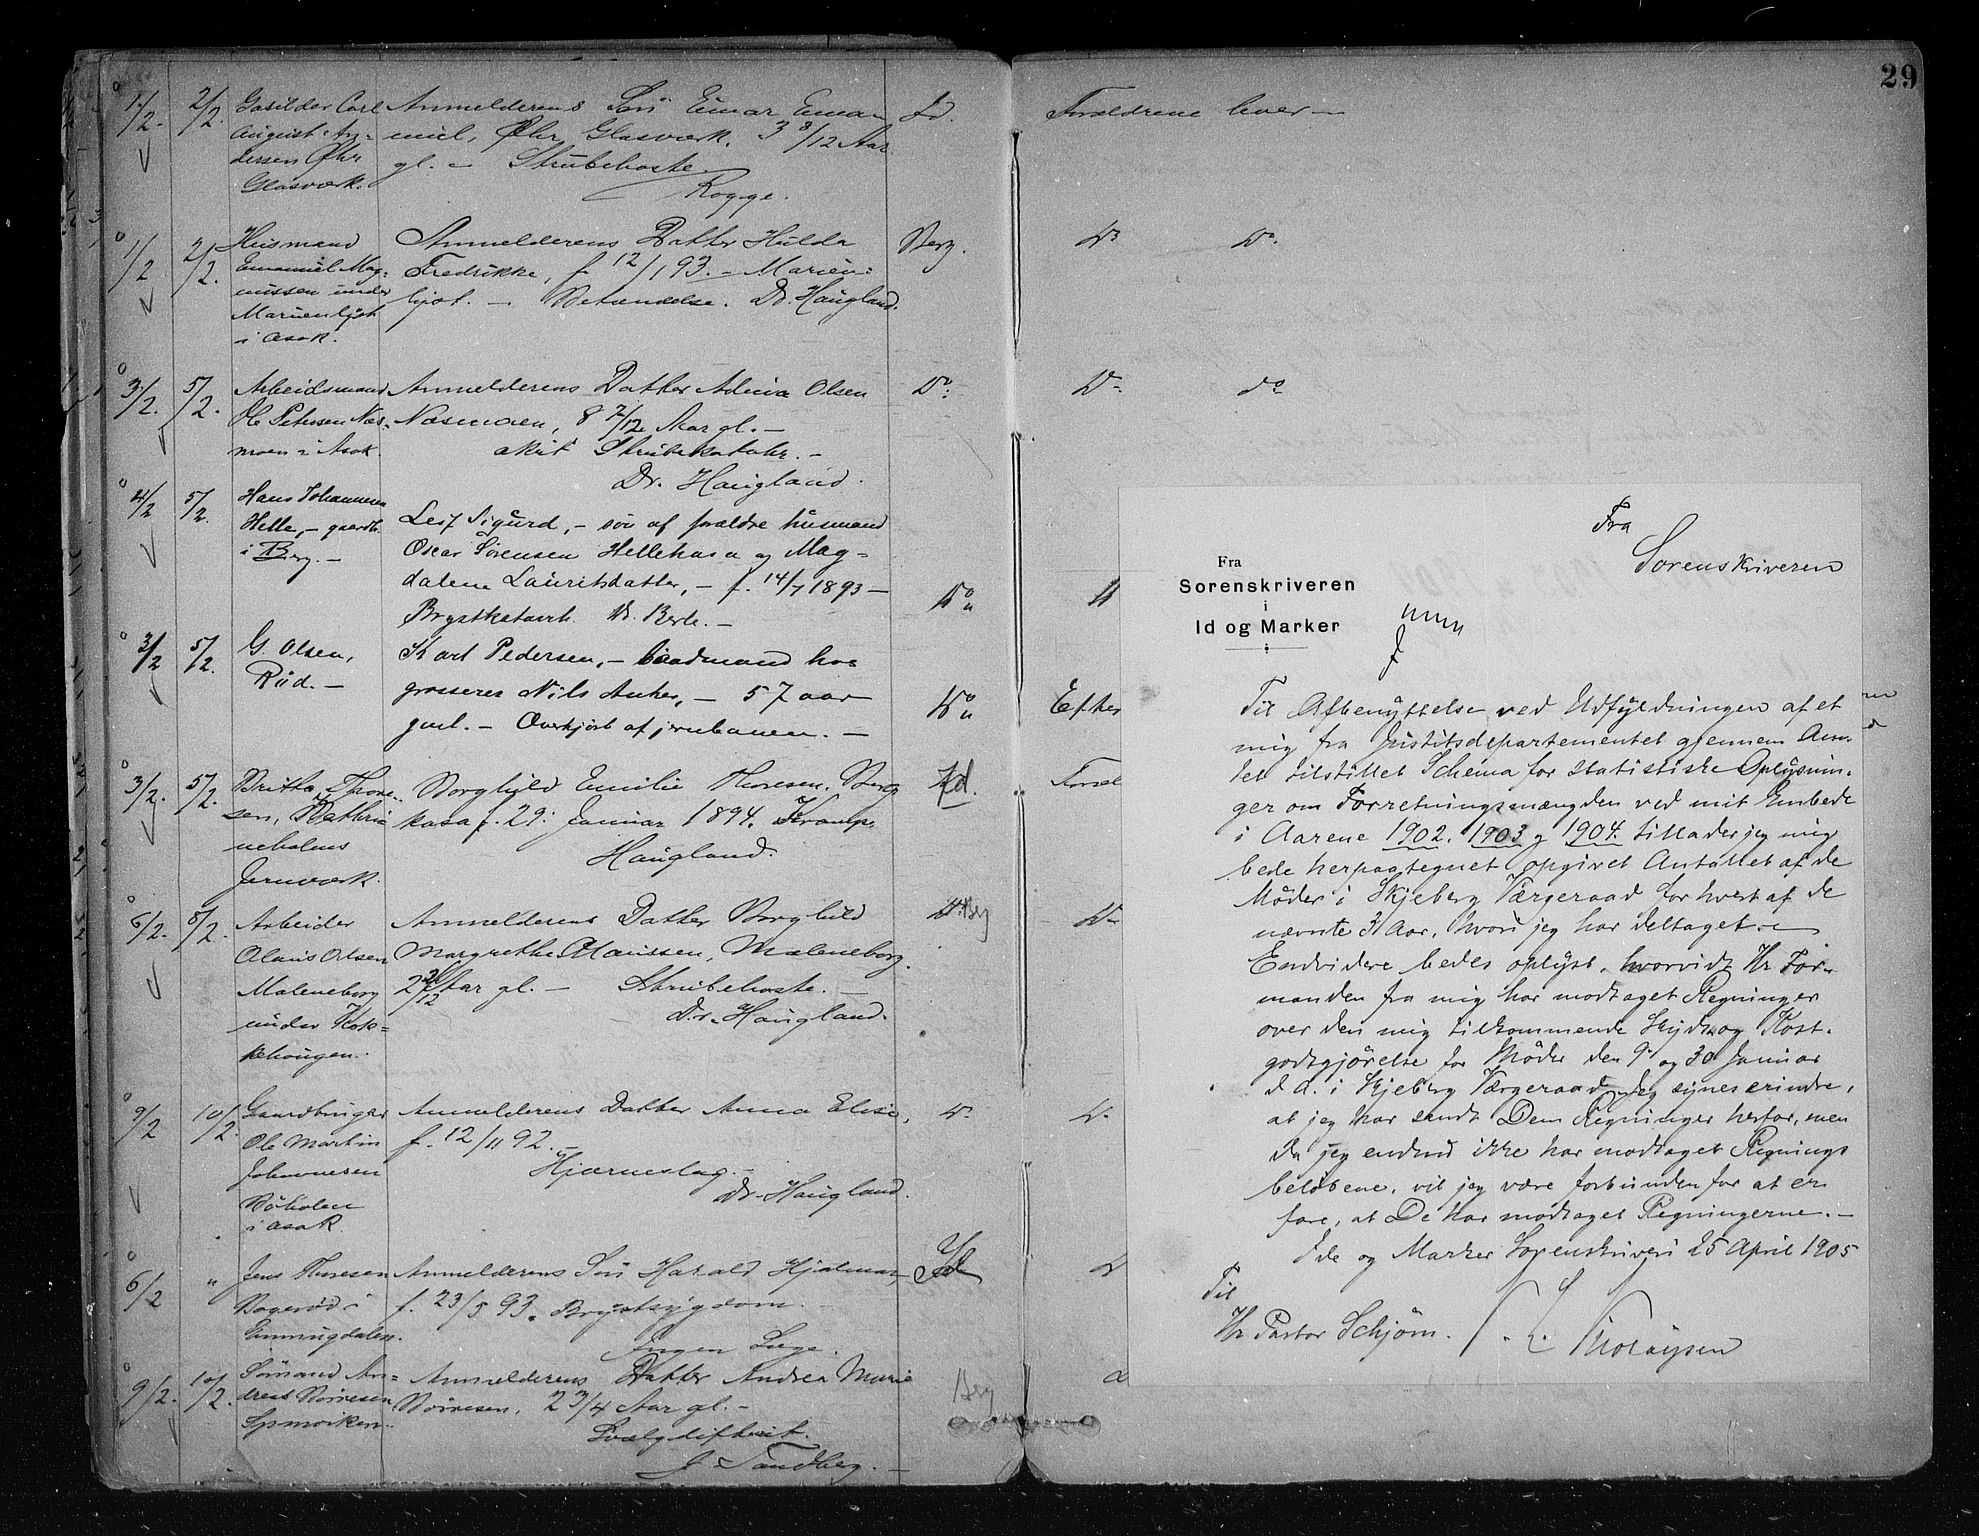 29
1/2. 2/2. Gasilder Carl Anmelderens Søn Einar Ema- Id. Forældrene lever
August An- nuel, Øhr Glasværk, 3 8/12 Aar
dersen Øhr gl. - Strubehoste
Glasværk. Rogge.
1/2 2/2. Husmand Anmelderens Datter Hulda Berg. Do Do
Emanuel Mag- Fredrikke, f. 12/1 93. - Marien-
nussen under lyst. - Betændelse. Dr. Haugland.
Marienlyst
i Asak.
3/2. 5/2. Arbeidsmand Anmelderens Datter Adina Olsen Do. Do do
Ole Petersen Næs- Næsmoen, 8 7/12 Aar gl. -
moen i Asak. akut Strubekatahr. -
Dr. Haugland.
4/2 5/2. Hans Johannesen
Helle, - gaardb. Leif Sigurd, - søn af forældre husmand
i Berg. - Oscar Sørensen Hellehasa og Mag-
dalene Lauritsdatter, - f. 14/7 1893 - Do
Brystkatarrh. Dr. Berle. -
3/2 5/2 G. Olsen, Karl Pedersen, - baadmand hos
Rød. - grosserer Nils Anker, - 57 aar Do Efter
gml. - Overkjørt af jernbanen. -
3/2. 5/2. Britta Thore- Borghild Emilie Thoresen, Berg Id. Foræl
sen, Cathri- kasa f. 29. Januar 1894. Kramp.
neholms Haugland.
Jernværk.
6/2. 8/2. Arbeider Anmelderens Datter Borghild Berg Do
Olaus Olsen Margrethe Olaussen, Maleneborg.
Maleneborg 2 /12 Aar gl. - Strubehoste. -
under Kok- Dr. Haugland.
kehaugen.
9/2 10/2. Gaardbruger Anmelderens Datter Anna Elise, Do Do
Ole Martin f. 12/11 92. -
Johannesen Hjærneslag. -
Dr. Haugland.
i Asak
6/2 " Jens Thoresen Anmelderens Søn Harald Hjalmar, Id
f. 23/5 93. Brystsygdom. -
Enningdalen. Ingen Læge.
9/2. 10/2. Sømand An- Anmelderens Datter Andrea Marie Berg
dreas 2 3/4 Aar gl. -
Sponviken. Svælgdifterit.
Tandberg. -
Fra
Sorenskriveren
Fra
Sorenskriveren
i
Id og Marker
Til Afbenyttelse ved Udfyldningen af et
mig fra Justitsdepartementet gjennem Amt-
tet tilstillet Schema for statistiske Oplysnin-
ger om Forretningsmængden ved mit Embede
i Aarene 1902. 1903 og 1904. tillader jeg mig
bede herpaategnet opgivet Antallet af de
Møder i Skjeberg Værgeraad for hvert af de
nævnte 3 Aar, hvori jeg har deltaget. -
Endvidere bedes oplyst, hvorvidt Hr For-
manden fra mig har modtaget Regninger
over den mig tilkommende Skyds og Kost-
godtgjørelse for Møder den 9. og 30 Januar
d. A. i Skjeberg Værgeraad. Jeg synes erindre,
at jeg har sendt Dem Regninger herfor, men
da jeg endnu ikke har modtaget Regnings
beløbene, vil jeg være forbunden for at er-
fare, at De har modtaget Regningerne. -
Ide og Marker Sorenskriveri 25 April 1905
Til
Hr Pastor Schjørn.